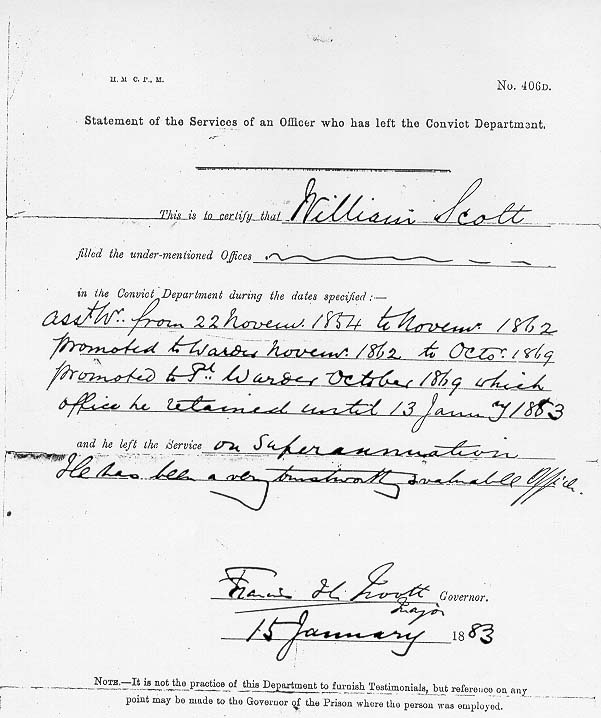 H. M C. P., M.
No. 406D.
Statement of the Services of an Officer who has left the Convict Department.
This is to certify that William Scott
filled the under-mentioned Offices
in the Convict Department during the dates specified:—
asst Wr. from 22 Novemr. 1854 to Novemr. 1862
promoted to Warder Novemr. 1862 to Octor. 1869
promoted to Pl. Warder October 1869 which
office he retained until 13 Janury 1883
and he left the Service on Superannuation
He has been a very trustworthy & valuable Officer.
Francis H. Governor.
Major
15 January 1883
NOTE.—It is not the practice of this Department to furnish Testimonials, but reference on any
point may be made to the Governor of the Prison where the person was employed.